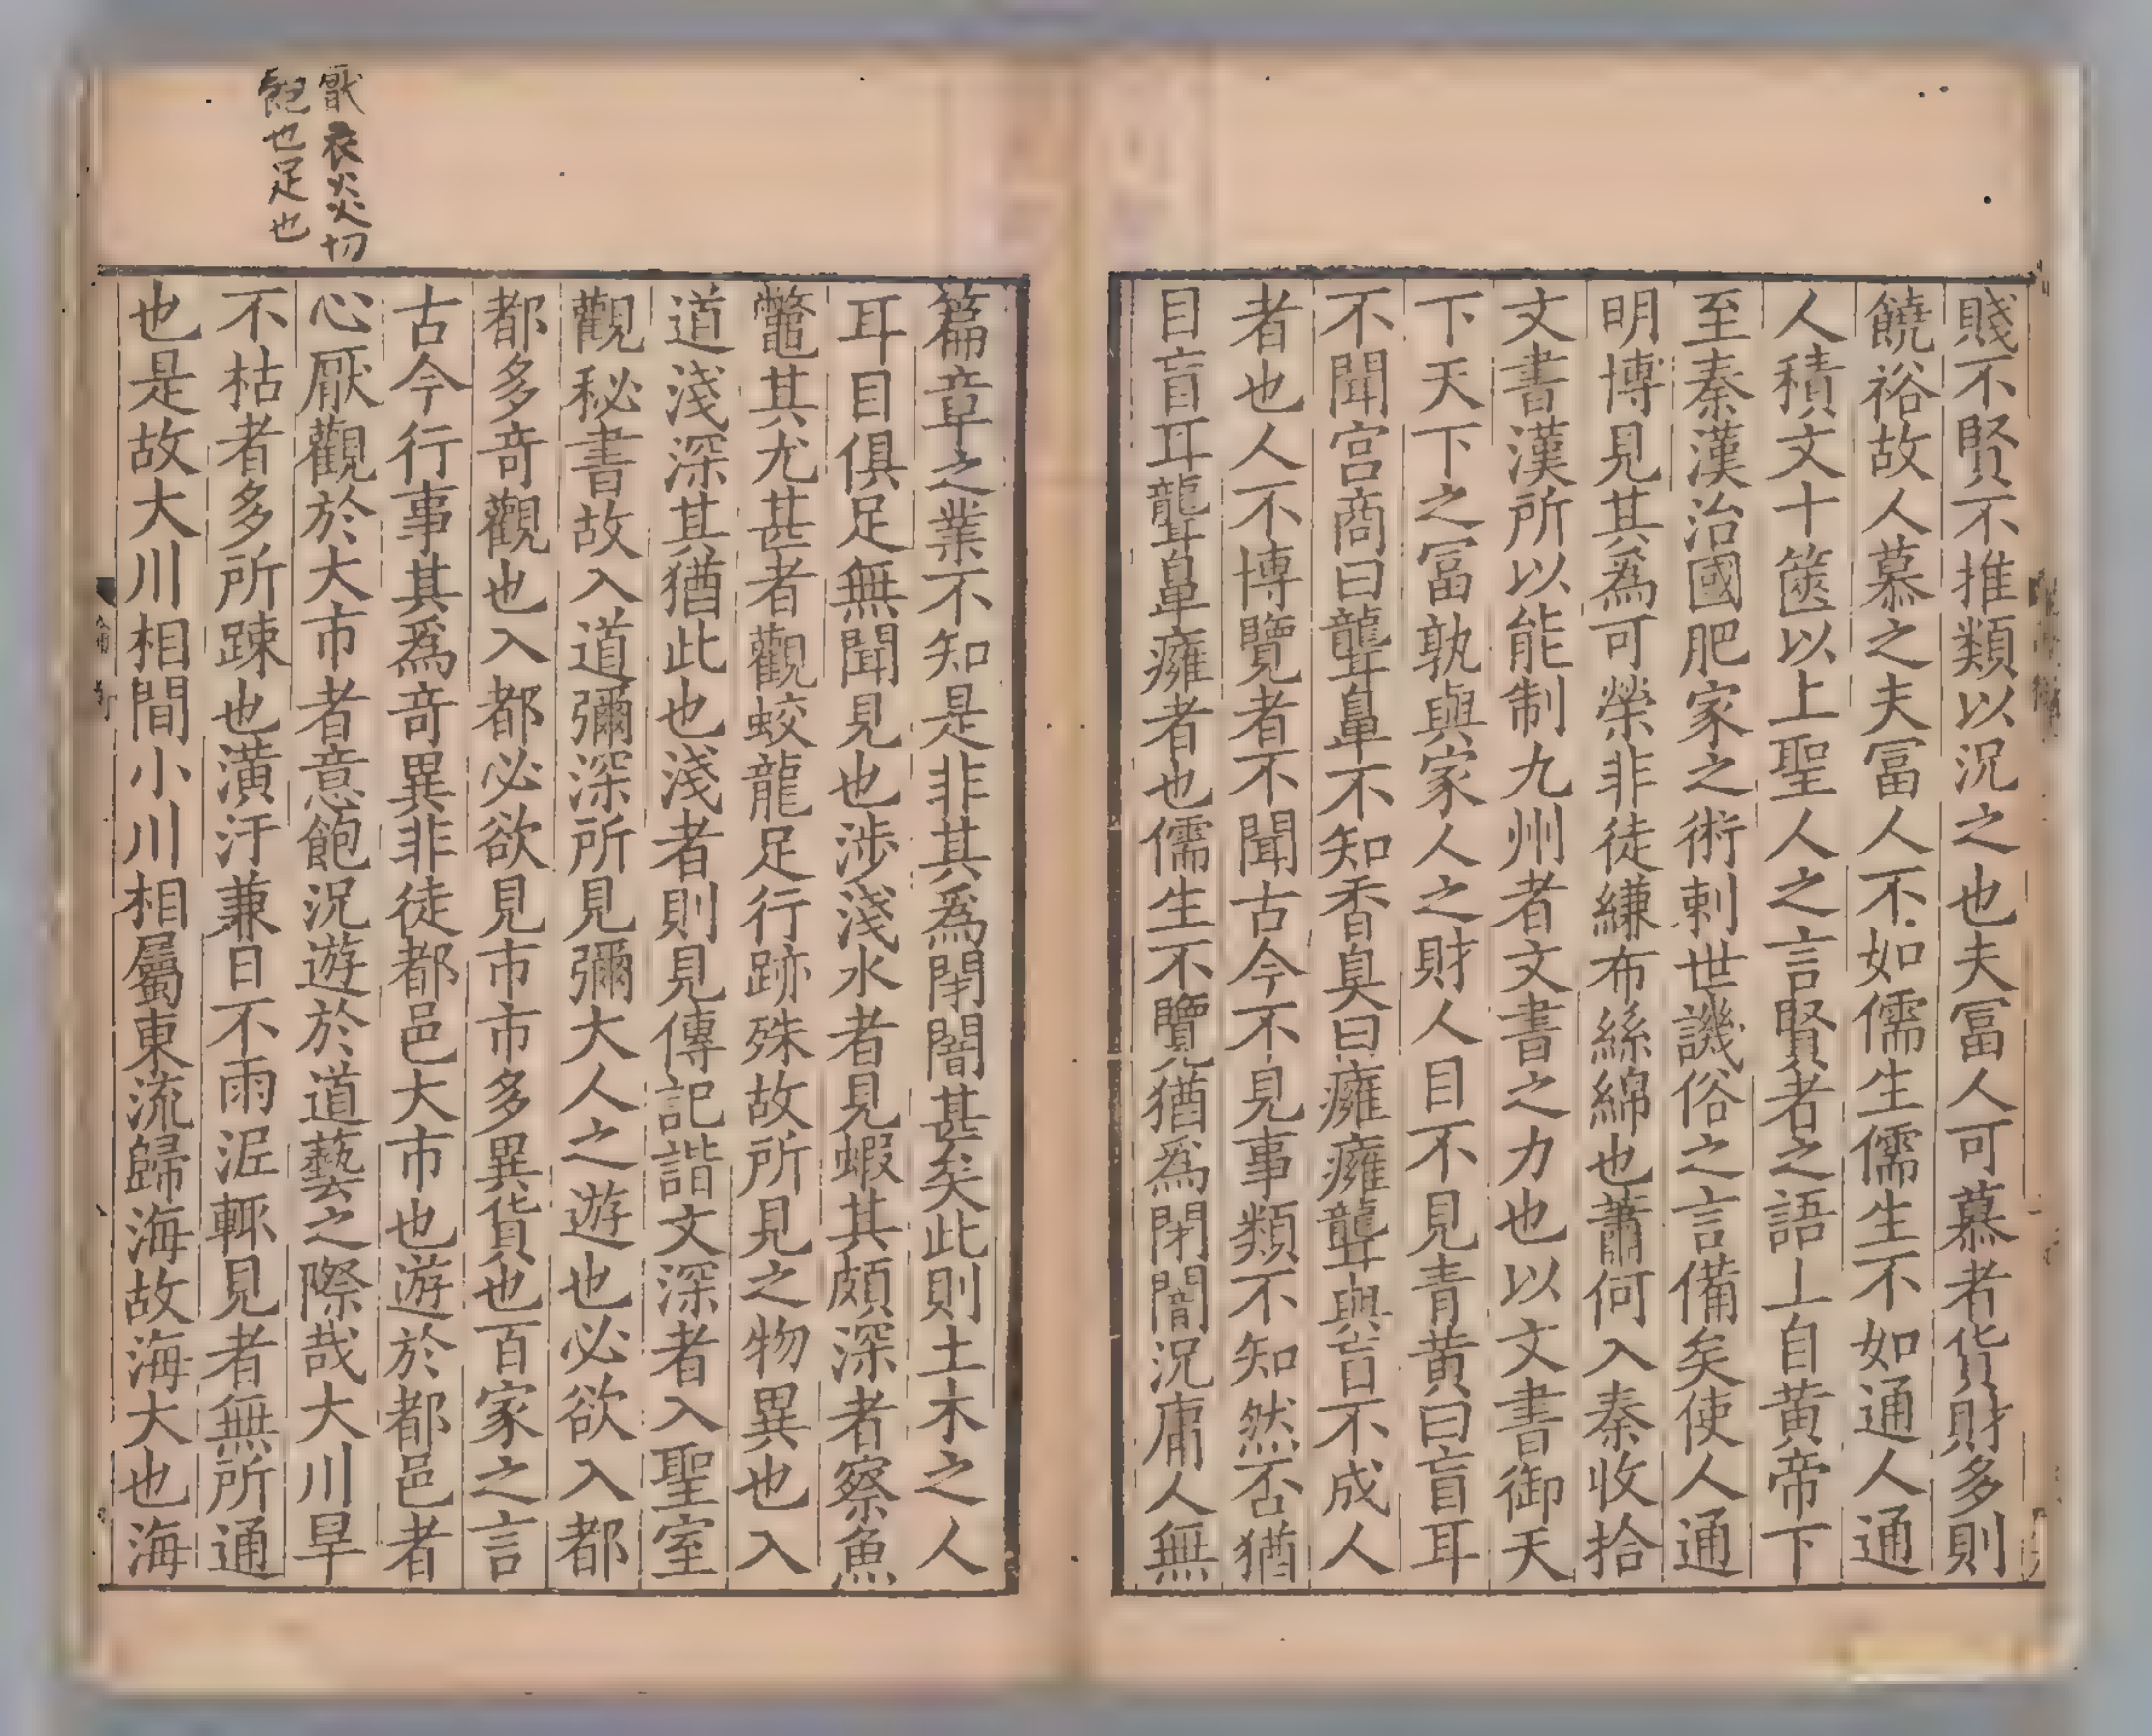 賤不賢不推類以況之也夫冨人可慕者貨財多則
饒裕故人慕之夫冨人不如儒生儒生不如通人通
人積文十篋以上聖人之言賢者之語上自黃帝下
至秦漢治國肥家之術刺世譏俗之言備矣使人通
明博見其爲可榮非徒縑布絲綿也蕭何入秦收拾
文書漢所以能制九州者文書之力也以文書御天
下天下之冨孰與家人之財人目不見青黃曰盲耳
不聞宮商曰聾鼻不知香臭曰癰癰聾與盲不成人
者也人不博覽者不聞古今不見事類不知然否猶
目盲耳聾鼻癰者也儒生不覽猶爲閉闇況庸人無
篇章之業不知是非其爲閉闇甚矣此則土木之人
耳目俱足無聞見也涉淺水者見蝦其頗深者察魚
鼈其尤甚者觀蛟龍足行跡殊故所見之物異也入
道淺深其猶此也淺者則見傳記諧文深者入聖室
觀秘書故入道彌深所見彌大人之遊也必欲入都
都多奇觀也入都必欲見市市多異貨也百家之言
古今行事其爲奇異非徒都邑大市也遊於都邑者
心厭觀於大市者意飽況遊於道藝之際哉大川旱
不枯者多所踈也潢汙兼日不雨泥輒見者無所通
也是故大川相間小川相屬東流歸海故海大也海
厭衣炎切
飽也足也